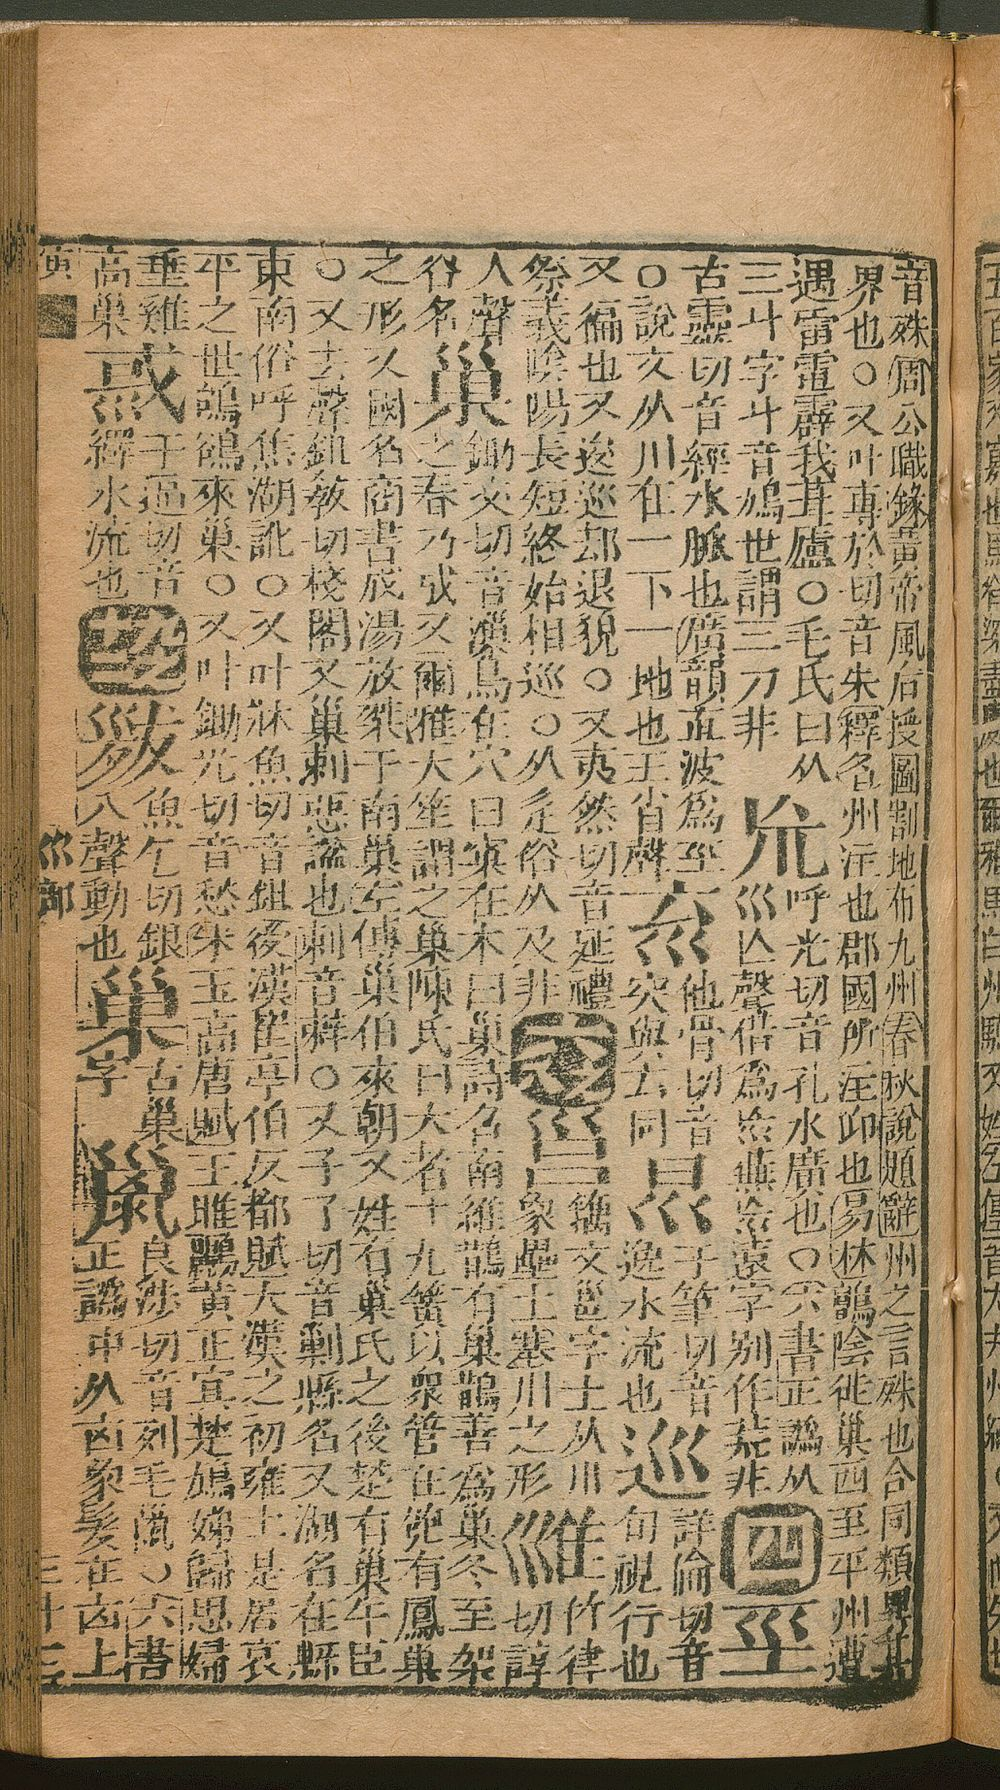 音殊周公職錄黃帝風后授圖割地布九州春秋說題辭州之言殊也合同類異其
界也○又叶專於切音朱釋名州注也郡國所注仰也易林鷮陰徙巢西至平州遭
遇雷電霹我茸廬○毛氏曰从
三斗字斗音鳩世謂三刀非
㠩呼光切音孔水廣也○六書正譌从
巛亾聲借爲㠩蕪㠩遠字別作荒非
四
巠
古靈切音經水脈也廣韻直波爲巠
○說文从川在一下一地也王省聲
㐬他骨切音
突與㐬同
㫐子筆切音
逸水流也
巡詳倫切音
旬視行也
又徧也又逡巡却退貌○又夷然切音延禮
祭義陰陽長短終始相巡○从辵俗从及非
六
邕籒文邕字土从川
象壘土塞川之形
竹律
切諄
人聲
谷名
巢鋤交切音漅鳥在穴曰窠在木曰巢詩召南維鵲有巢鵲善爲巢冬至架
之春乃成又爾雅大笙謂之巢陳氏曰大者十九簧以衆管在匏有鳳巢
之形又國名商書成湯放桀于南巢左傳巢伯來朝又姓有巢氏之後楚有巢牛臣
○又去聲鉏敎切棧閣又巢刺惡識也刺音辢○又子了切音剿縣名又湖名在縣
東南俗呼焦湖訛○又叶牀魚切音鉏後漢崔亭伯反都賦大漢之初雍土是居哀
平之世鴝鵒來巢○又叶鋤尤切音愁朱玉高唐賦王雎鸝黃正宜楚鳩姊歸思婦
垂雞
高巢
惑于逼切音
繹水流也
七
魚乞切銀
入聲動也
巢古巢
字
巤良涉切音列毛巤○六書
正譌中从囟象髮在囟上
巛部
三十三